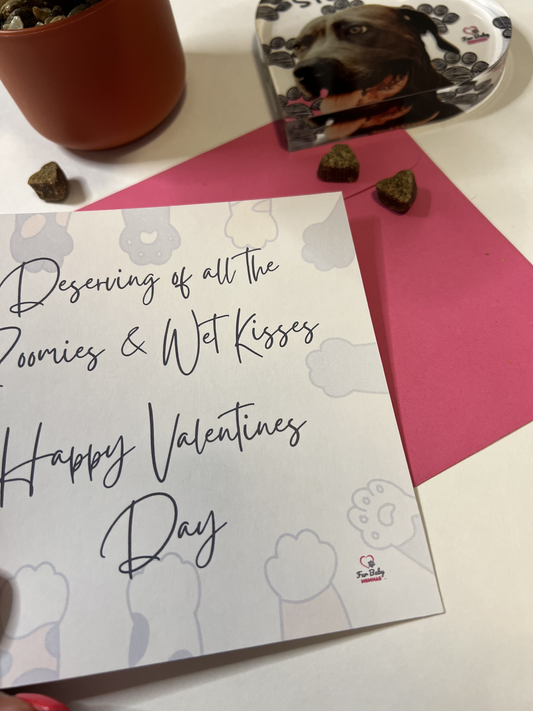 Deserving of all the
Zoomies & Wet Kisses
Happy Valentines
Day
Fur Baby